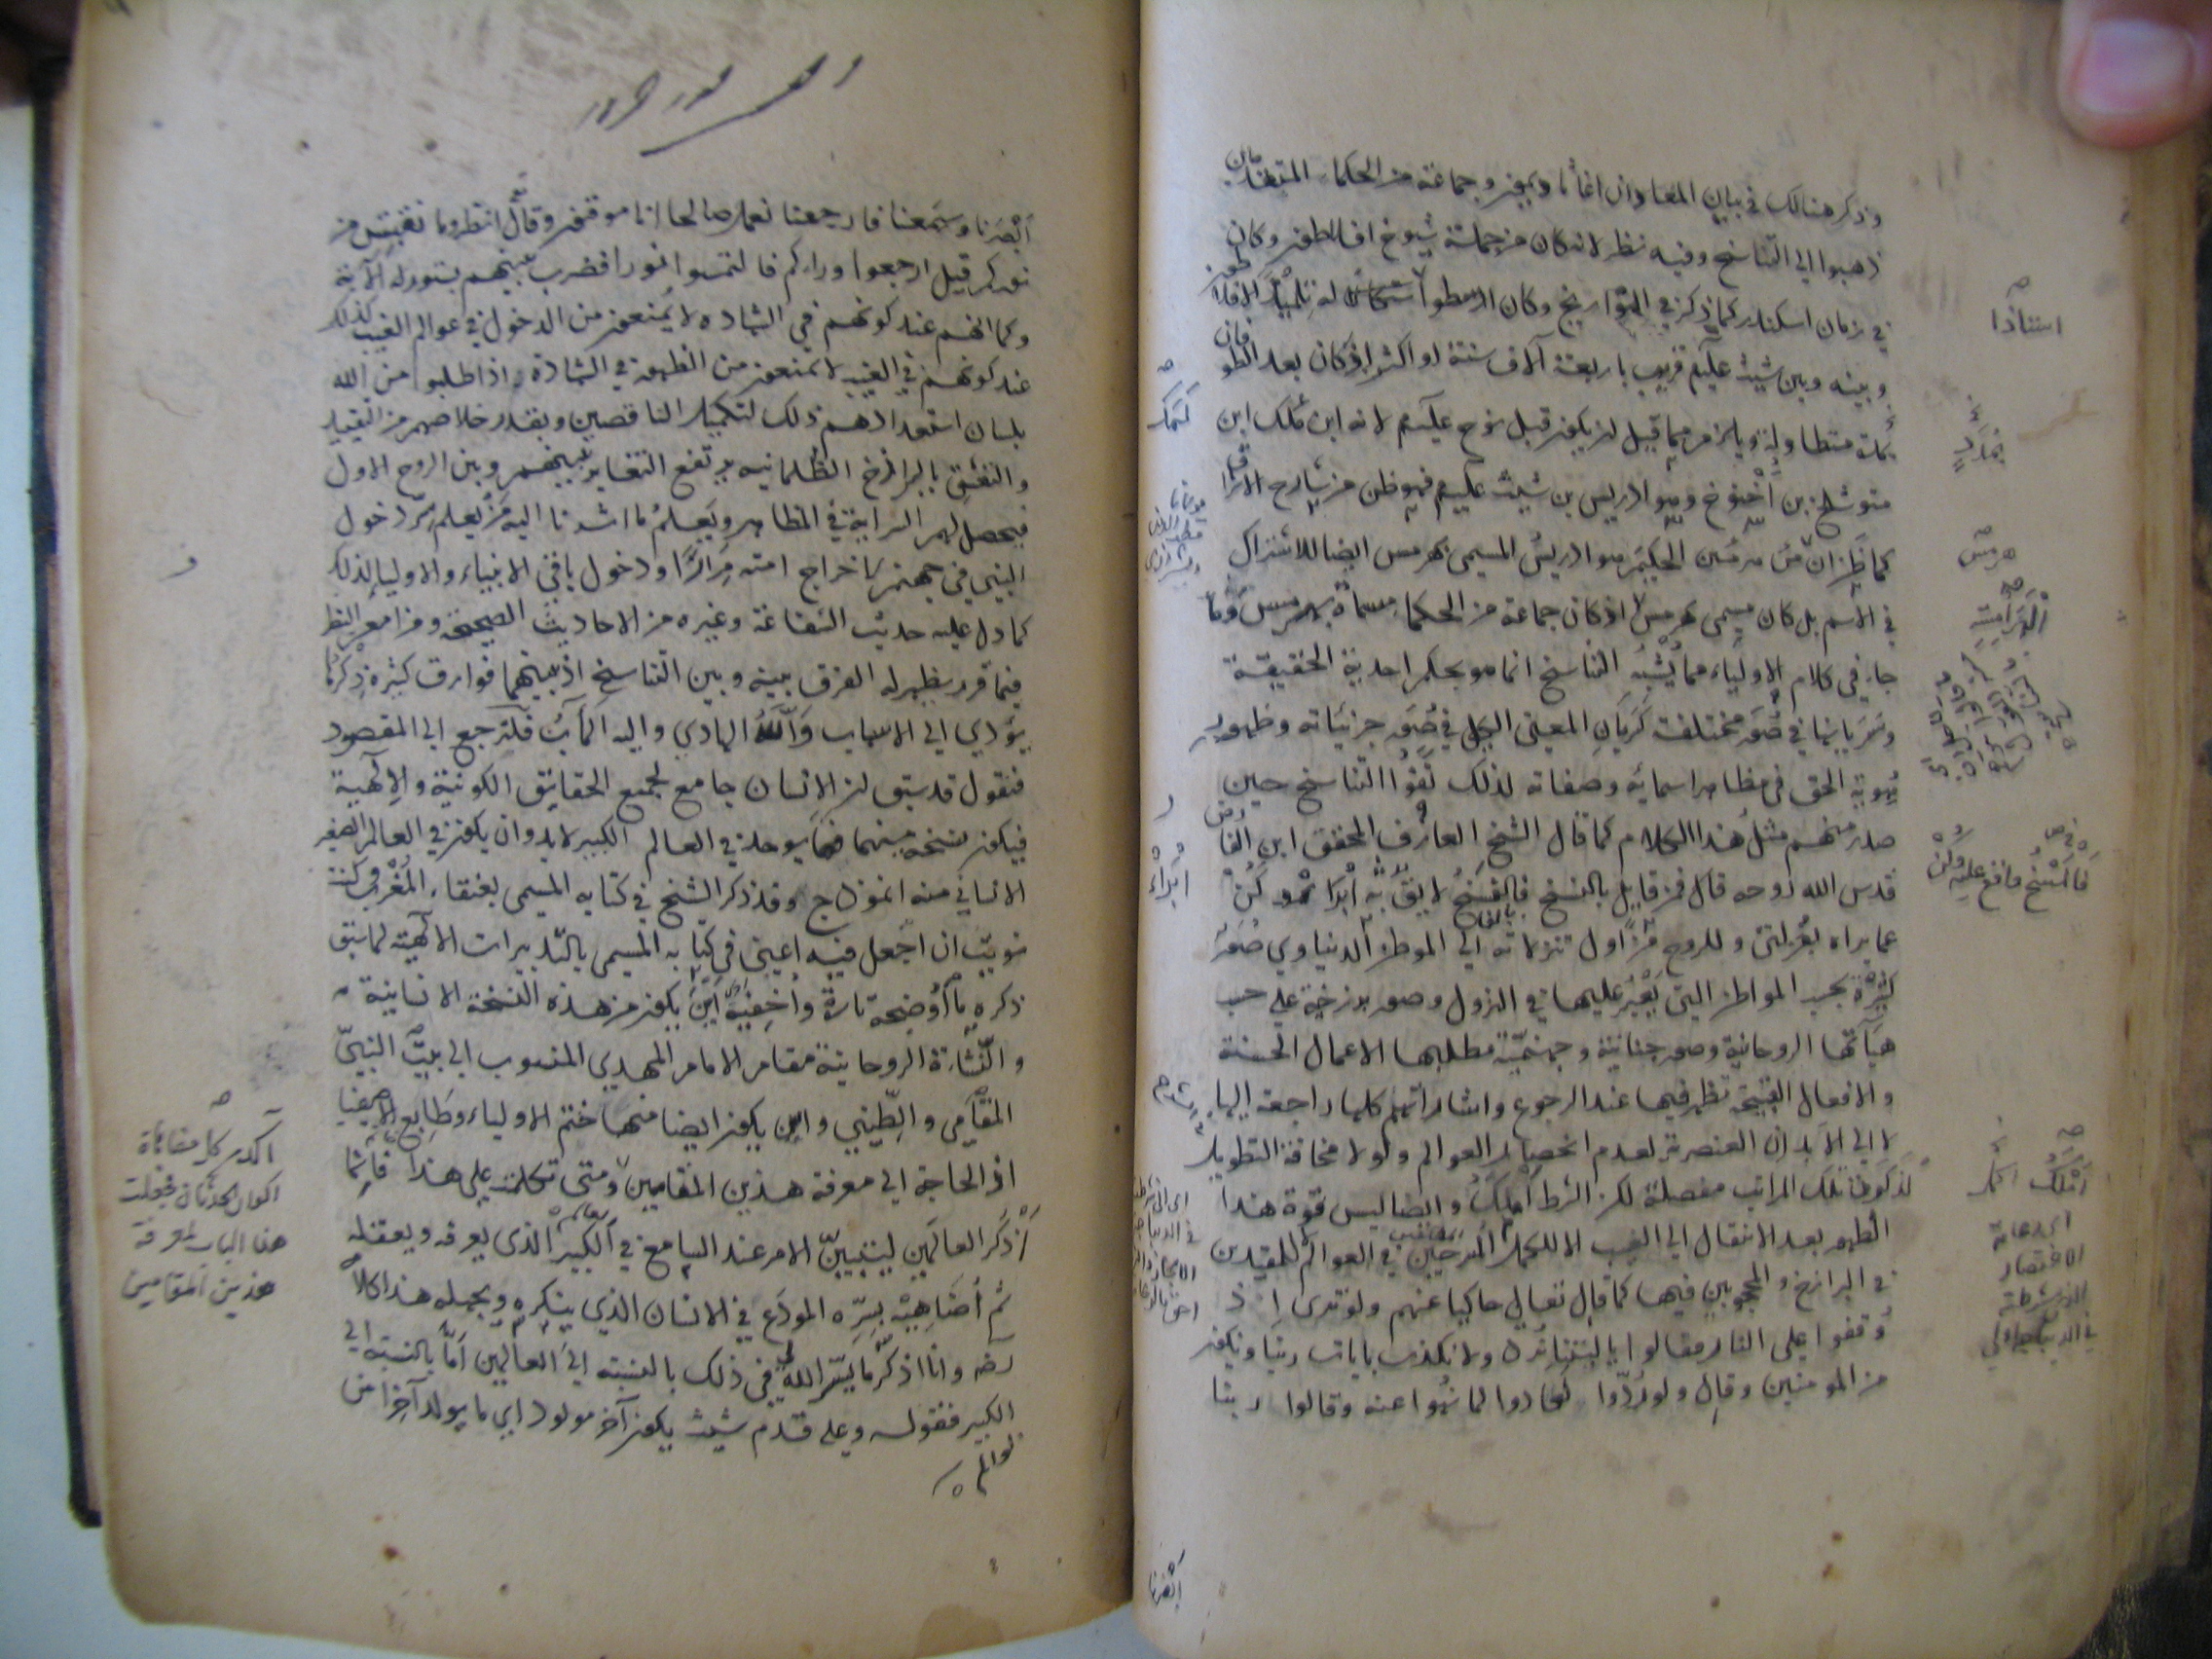 وذكر هنالك في بيان المعاد وان اغاثاذيمون وجماعة من الحكماء المتقدمين
ذهبوا الي التناسخ وفيه نظر لانه كان من جملة شيوخ افلاطون وكان
في زمان اسكندر كما ذكر في التواريخ وكان ارسطو استاذا له تلميذ الافلاطون
وبينه وبين شيث عليم قريب باربعة آلاف سنة او اكثر اذ كان بعد الطوفان
بمدة متطاولة ويلزم مما قيل ان يكون قبل نوح عليم لانه ابن لمك ابن
متوشلخ بن أخنوخ وهو ادريس بن شيث عليم فهو ظن من شارح الاشراق
كما ظن ان هرمس الحكيم هو ادريس المسمى بهرمس ايضا للاشتراك
في الاسم بل كان يسمى بهرمس اذ كان جماعة من الحكماء مسماة بهرمس وما
جاء في كلام الاولياء مما يشبه التناسخ انما هو بحكم احدية الحقيقة
وسريانها في صور مختلفة كسريان المعنى الكلي في صور جزئياته وظهور
هوية الحق في مظاهر اسمائه وصفاته لذلك نفوا التناسخ حين
صدر منهم مثل هذا الكلام كما قال الشيخ العارف المحقق ابن الفارض
قدس الله روحه قال فمن قايل بالنسخ فالمسخ لايق به ابدا وكن
عما يراه بعزلتى وللروح من اول تنزلاته الي الموطن الدنياوي صور
كثيرة بحسب المواطن التي يعبر عليها في النزول وصور برزخية على حسب
هيآتها الروحانية وصور جنانية وجهنمية مطلبها الاعمال الحسنة
والافعال القبيحة تظهر فيها عند الرجوع واشاراتهم كلها راجعة اليها
لا الي الابدان العنصرية لعدم انحصار العوالم ولولا مخافة التطويل
لذكرت تلك المراتب مفصلة لكن الشرط املك وايضا ليس قوة هذا
الظهور بعد الانتقال الي الغيب الا للكمل المسرحين في العوالم لا للمقيدين
في البرازخ والمحجوبين فيها كما قال تعالى حاكيا عنهم ولو ترى اذ
وقفوا على النار فقالوا يا ليتنا نرد ولا نكذب بايات ربنا ونكون
من المومنين وقال ولو ردوا لعادوا لما نهوا عنه وقالوا ربنا
استاذا
هرمس
أبصرنا
أبصرنا وسمعنا فارجعنا نعمل صالحا انا موقنون وقال انظرونا نقتبس من
نوركم قيل ارجعوا وراءكم فالتمسوا نورا فضرب بينهم بسور له الآية
وكما انهم عند كونهم في الشهادة لا يمنعون من الدخول في عوالم الغيب كذلك
عند كونهم في الغيب لا يمنعون من الظهور في الشهادة اذا طلبوا من الله
بلسان استعدادهم ذلك لتكميل الناقصين وبقدر خلاصهم من التقييد
والتعشق بالبرازخ الظلمانية يرتفع التغاير بينهم وبين الروح الاول
فيحصل لهم السراية في المظاهر ويعلم ما اشرنا اليه من يعلم سر دخول
النبي في جهنم لاخراج امته مرارا ودخول باقي الانبياء والاولياء لذلك
كما دل عليه حديث الشفاعة وغيره من الاحاديث الصحيحة ومن امعن النظر
فيما قرر يظهر له الفرق بينه وبين التناسخ اذ بينهما فوارق كثيرة ذكرها
يؤدي الي الاسهاب والله الهادي واليه المآب فلنرجع الي المقصود
فنقول قد سبق ان الانسان جامع لجميع الحقايق الكونية والالهية
فيكون نسخة منهما فما يوجد في العالم الكبير لابد وان يكون في العالم الصغير
الانساني منه انموذج وقد ذكر الشيخ في كتابه المسمى بعنقاء المغرب وكنت
نويت ان اجعل فيه اعني في كتابه المسمى بالتدبيرات الالهية لما سبق
ذكره ما أوضحه تارة واخفيه اين يكون من هذه النسخة الانسانية
والنشأة الروحانية مقام الامام المهدي المنسوب الي بيت النبي
المقامي والطيني واين يكون ايضا منها ختم الاولياء وطابع الاصفياء
اذ الحاجة الي معرفة هذين المقامين ومتى تكلمت على هذا فانما
أذكر العالمين ليتبين الامر عند السامع في الكبير الذي يعرفه ويعقله
ثم أضاهيه بسره المودع في الانسان الذي ينكره ويجهله هذا كلامه
رضه وانا اذكر ما يسر الله في ذلك بالنسبة الي العالمين أما بالنسبة الي
الكبير فنقول وعلى قدم شيث يكون آخر مولود اي ما يولد آخرا من
اكد من كل مضاهاة
الاكوان
هذا الباب لمعرفة
هذين المقامين